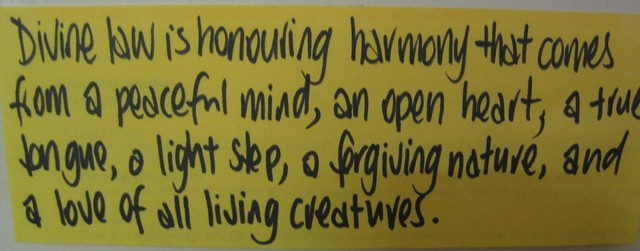 Divine law is honouring harmony that comes
from a peaceful mind, an open heart, a true
tongue, a light step, a forgiving nature, and
a love of all living creatures.